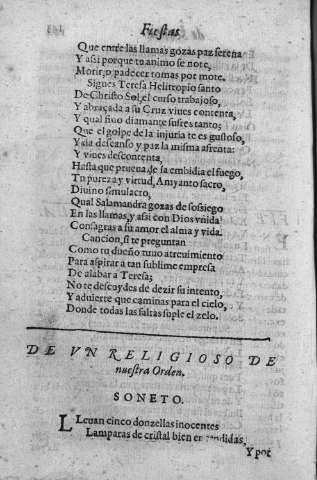 Fiestas
Que entre las llamas gozas paz serena
Y assi porque tu animo se note,
Morir, o padecer tomas por mote.
Sigues Teresa Helitropio santo
De Christo Sol, el curso trabajoso,
Y abraçada a su Cruz viues contenta,
Y qual fino diamante sufres tanto;
Que el golpe de la injuria te es gustoso,
Y da descanso y paz la misma afrenta:
Y viues descontenta,
Hasta que prueua de la embidia el fuego,
Tu pureza y virtud, Amyanto sacro,
Diuino simulacro,
Qual Salamandra gozas de sossiego
En las llamas, y assi con Dios vnida
Consagras a su amor el alma y vida.
Cancion, si te preguntan
Como tu dueño tuuo atreuimiento
Para aspirar a tan sublime empresa
De alabar a Teresa;
No te descuydes de dezir su intento,
Y aduierte que caminas para el cielo,
Donde todas las faltas suple el zelo.
DE VN RELIGIOSO DE
nuestra Orden.
SONETO.
LLeuan cinco donzellas inocentes
Lamparas de cristal bien encendidas,
Y por